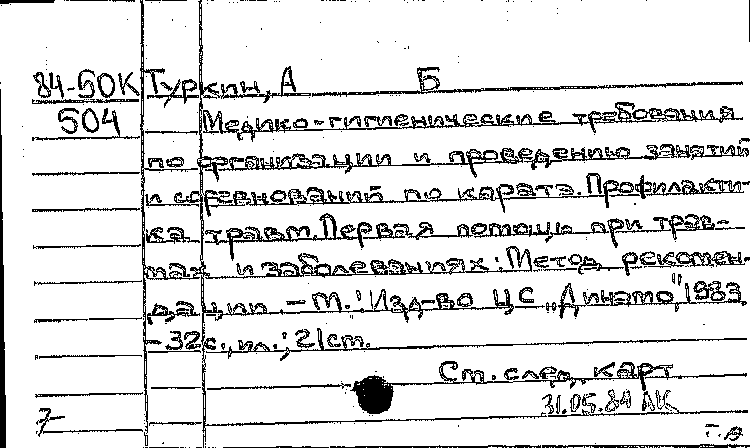 84-50К Туркин, А Б
504 Медико-гигиенические требования
по организации и проведению занятий
и соревнований по каратэ. Профилакти-
ка травм. Первая помощь при трав-
мах и заболеваниях: Метод. рекомен-
дации. - М.: Изд-во ЦС „Динамо", 1983.
- 32с., ил.; 21см.
См. след. карт.
31.05.84 АК
7-